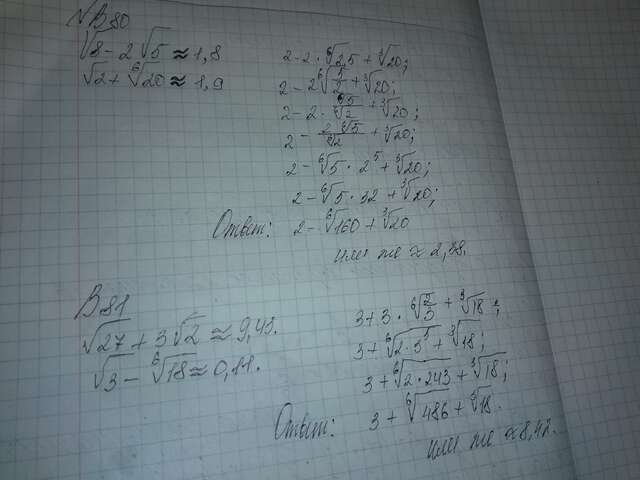 √B80
√8 - 2√5 ≈ 1,8
√2 + ⁶√20 ≈ 1,9
2 - 2 · ⁶√2,5 + ³√20;
2 - 2 ⁶√5/2 + ³√20;
2 - 2 · ⁶√5/⁶√2 + ³√20;
2 - 2 ⁶√5/⁶√2 + ³√20;
2 - ⁶√5 · 2⁵ + ³√20;
2 - ⁶√5 · 32 + ³√20;
Ответ: 2 - ⁶√160 + ³√20
или же ≈ 2,38.
B81
√27 + 3√2 ≈ 9,43.
√3 - ⁶√18 ≈ 0,11.
3 + 3 · ⁶√2/3 + ³√18;
3 + ⁶√2 · 3⁵ + ³√18;
3 + ⁶√2 · 243 + ³√18;
Ответ: 3 + ⁶√486 + ³√18.
или же ≈ 8,42.